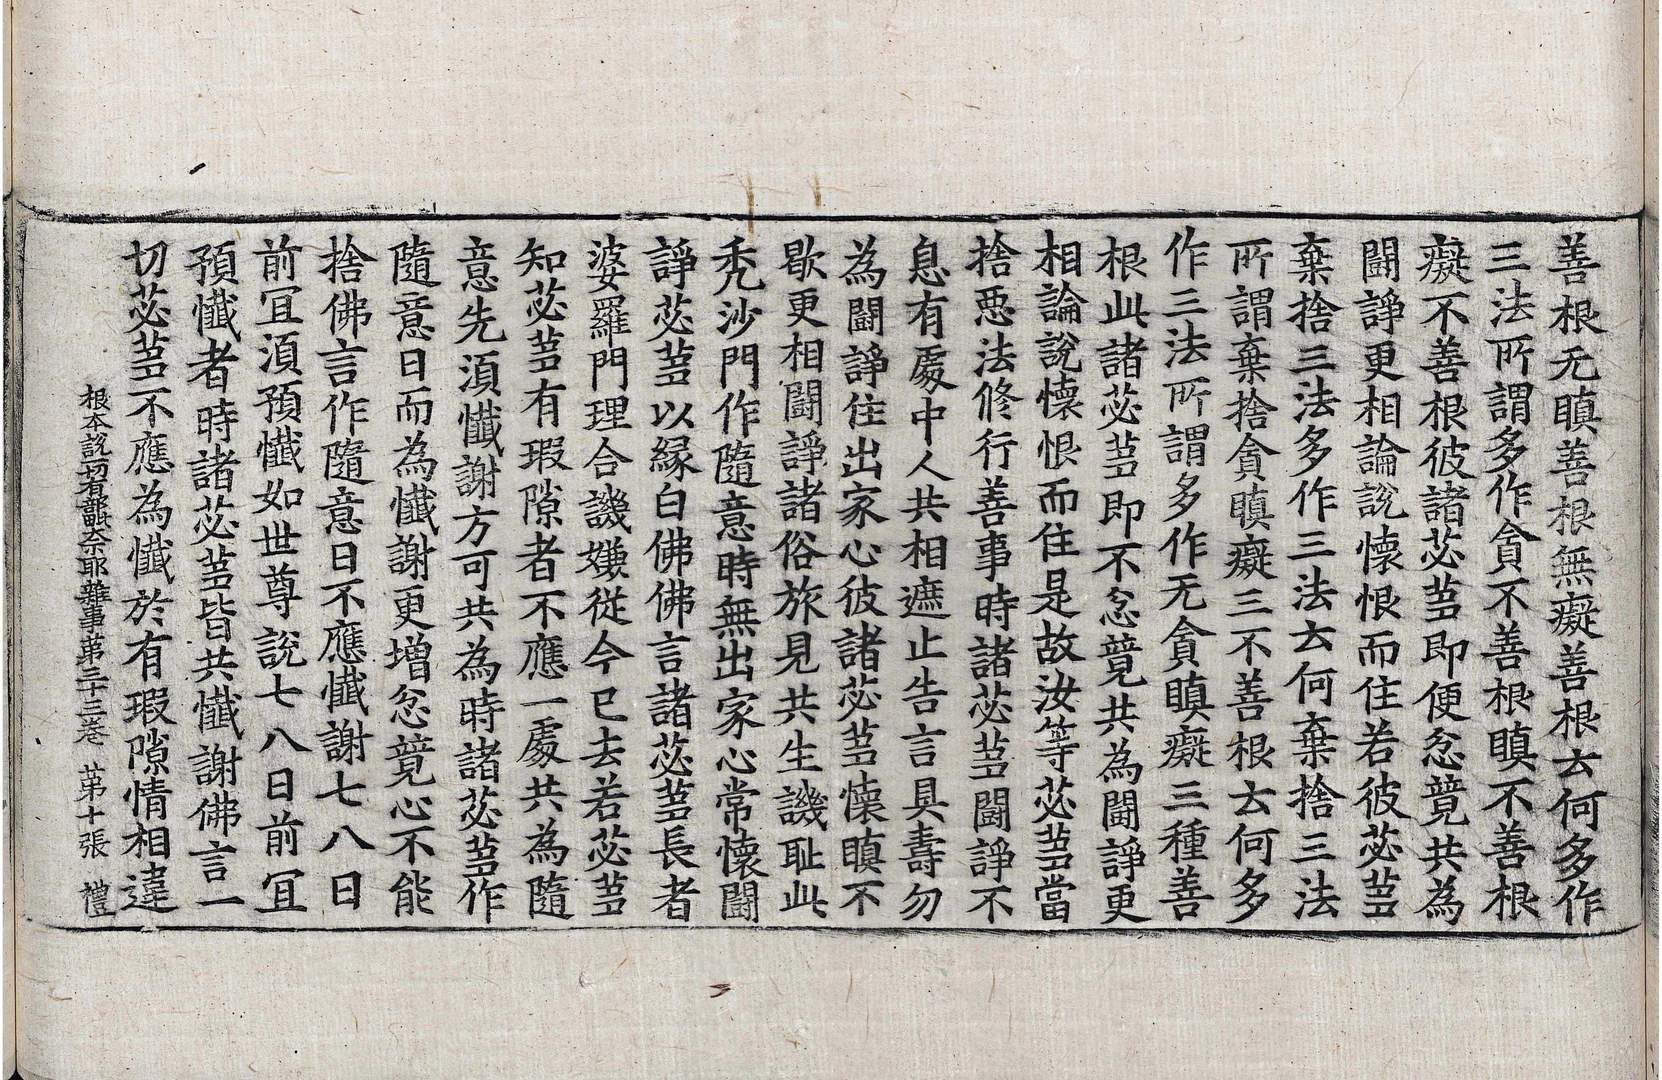 善根无瞋善根無癡善根云何多作
三法所謂多作貪不善根瞋不善根
癡不善根彼諸苾芻即便忿競共為
鬪諍更相論說懷恨而住若彼苾芻
棄捨三法多作三法云何棄捨三法
所謂棄捨貪瞋癡三不善根云何多
作三法所謂多作无貪瞋癡三種善
根此諸苾芻即不忿競共為鬪諍更
相論說懷恨而住是故汝等苾芻當
捨惡法修行善事時諸苾芻鬪諍不
息有處中人共相遮止告言具壽勿
為鬪諍住出家心彼諸苾芻懷瞋不
歇更相鬪諍諸俗旅見共生譏恥此
禿沙門作隨意時無出家心常懷鬪
諍苾芻以緣白佛佛言諸苾芻長者
婆羅門理合譏嫌從今已去若苾芻
知苾芻有瑕隙者不應一處共為隨
意先須懺謝方可共為時諸苾芻作
隨意日而為懺謝更增忿競心不能
捨佛言作隨意日不應懺謝七八日
前冝須預懺如世尊說七八日前冝
預懺者時諸苾芻皆共懺謝佛言一
切苾芻不應為懺於有瑕隙情相違
根本說一切有部毗奈耶雜事第二十三卷 第十張 禮